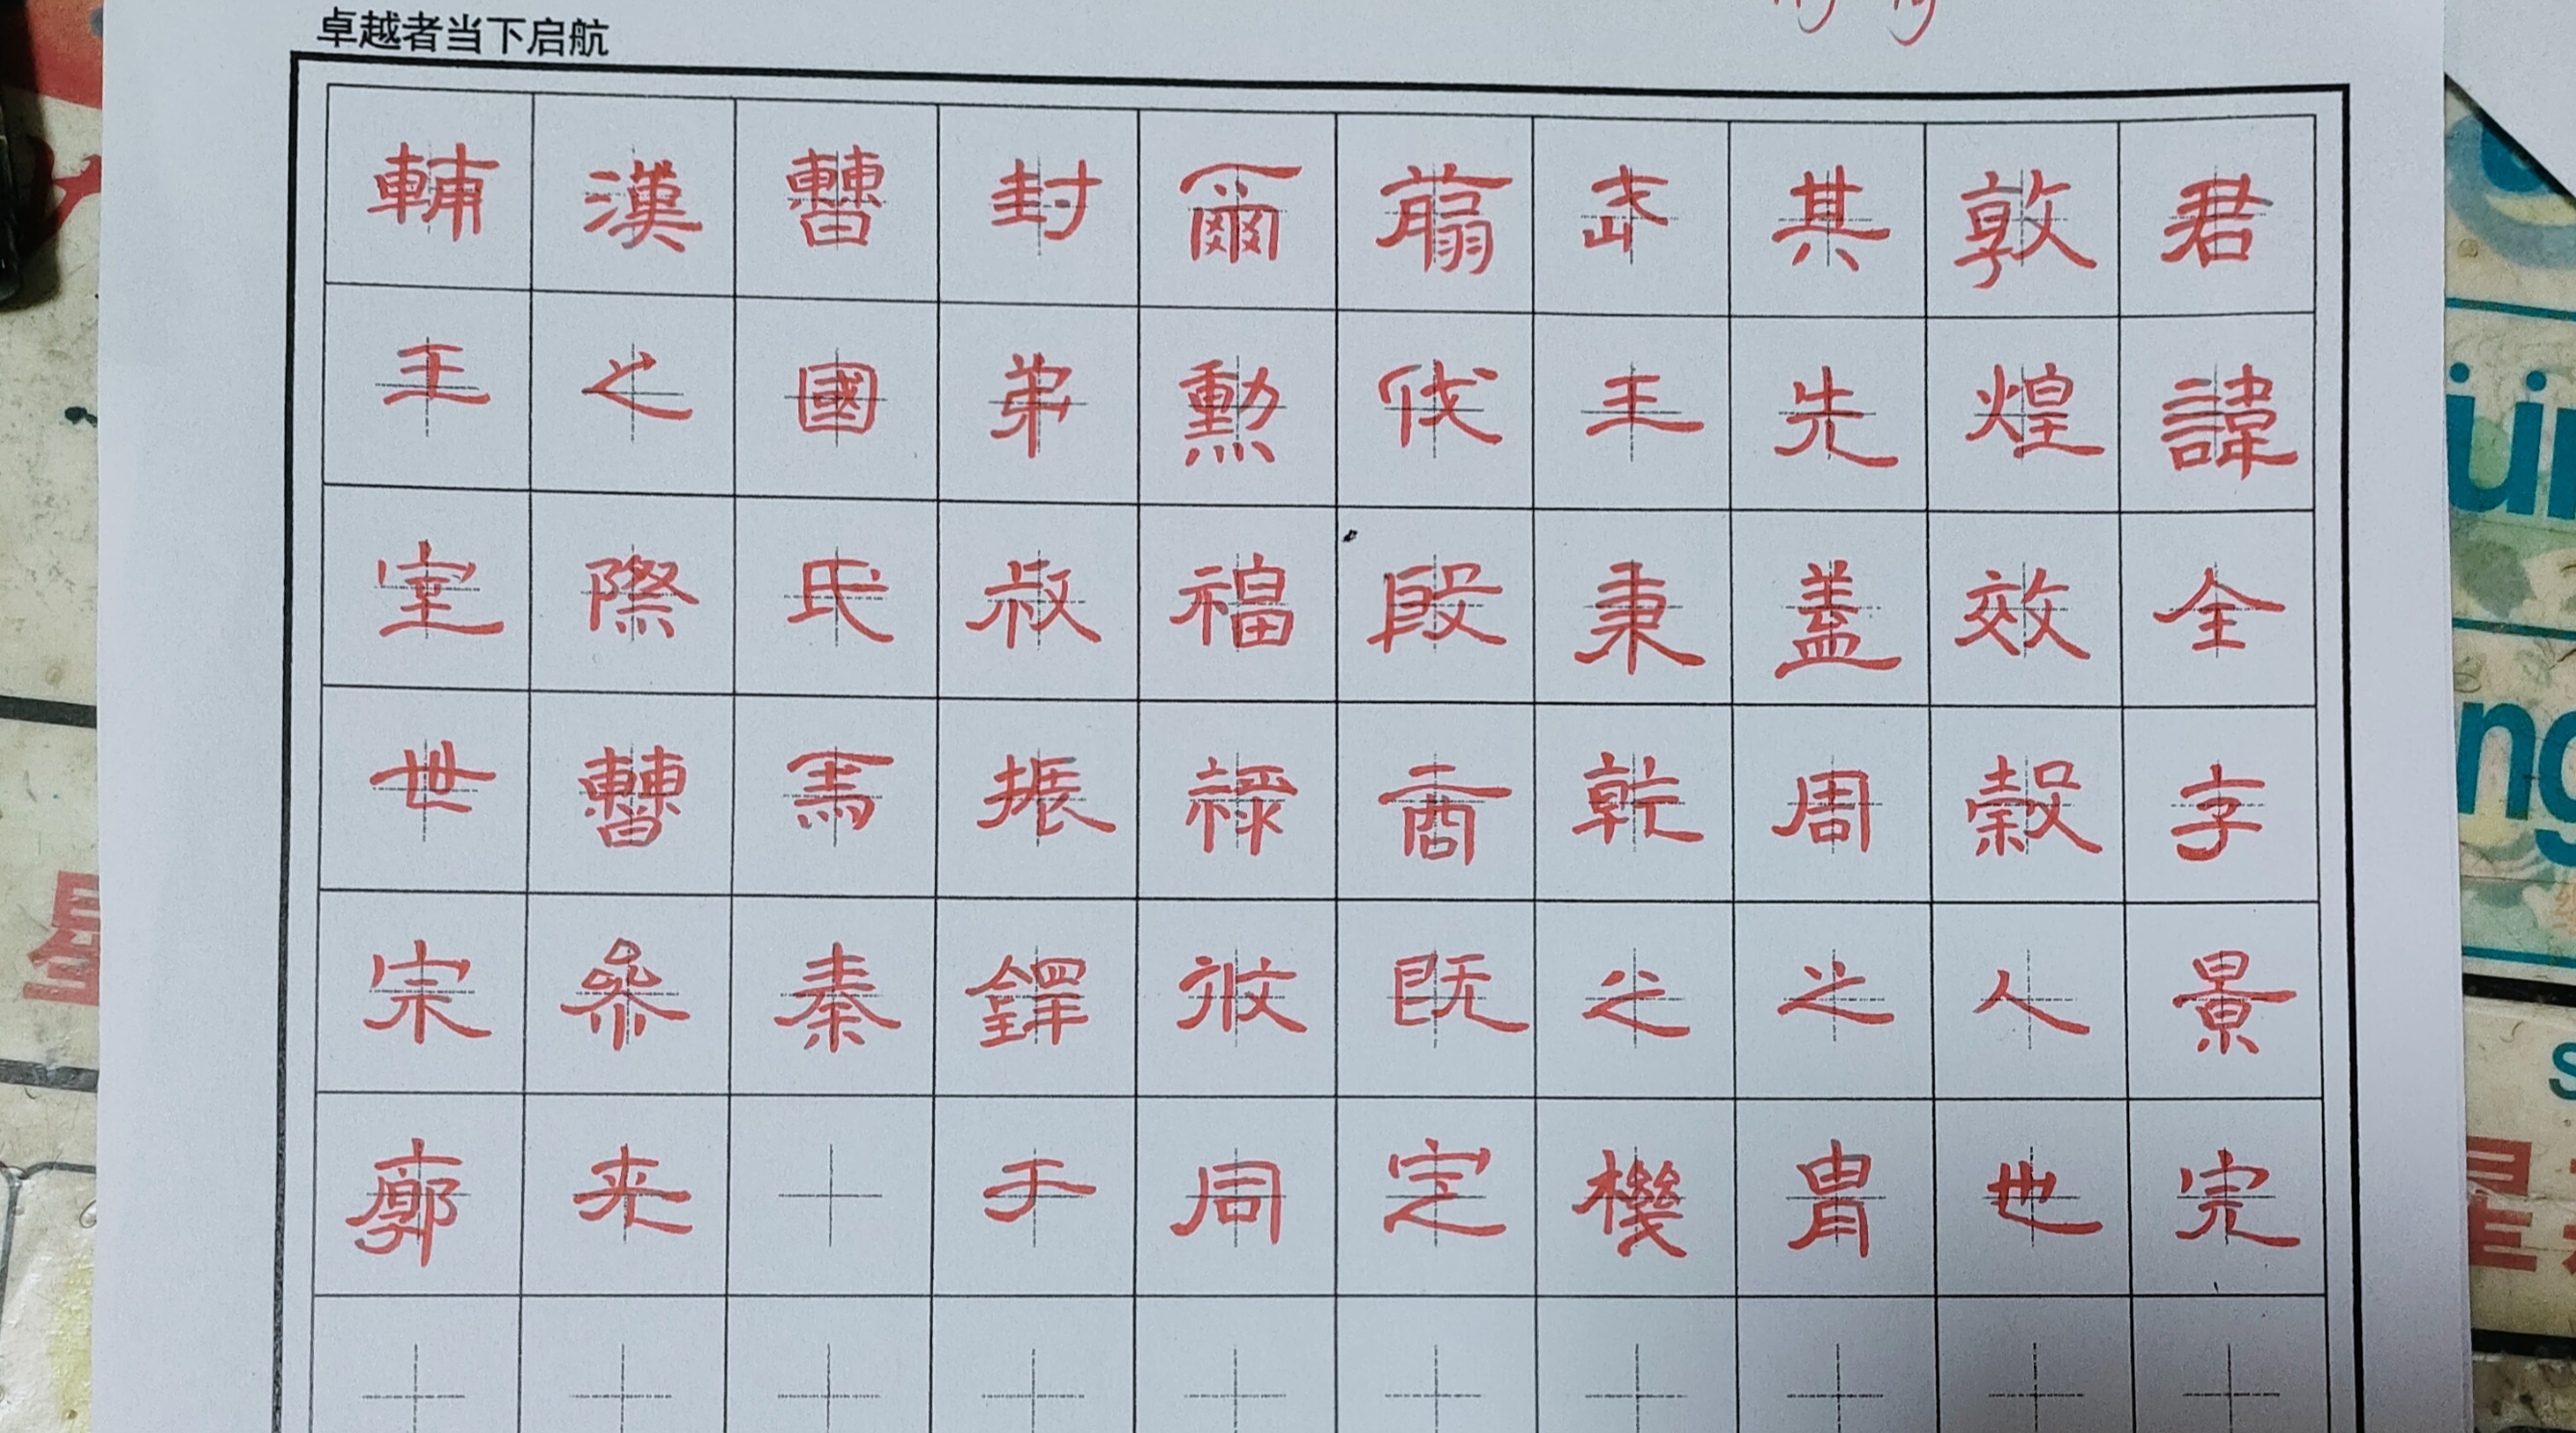 卓越者当下启航
君諱全字景完
敦煌效穀人也
其先蓋周之胄
武王秉乾之機
翦伐殷商既定
爾勳福祿攸同
封弟叔振鐸于
曹國氏焉秦
漢之際曹參夾
輔王室世宗廓